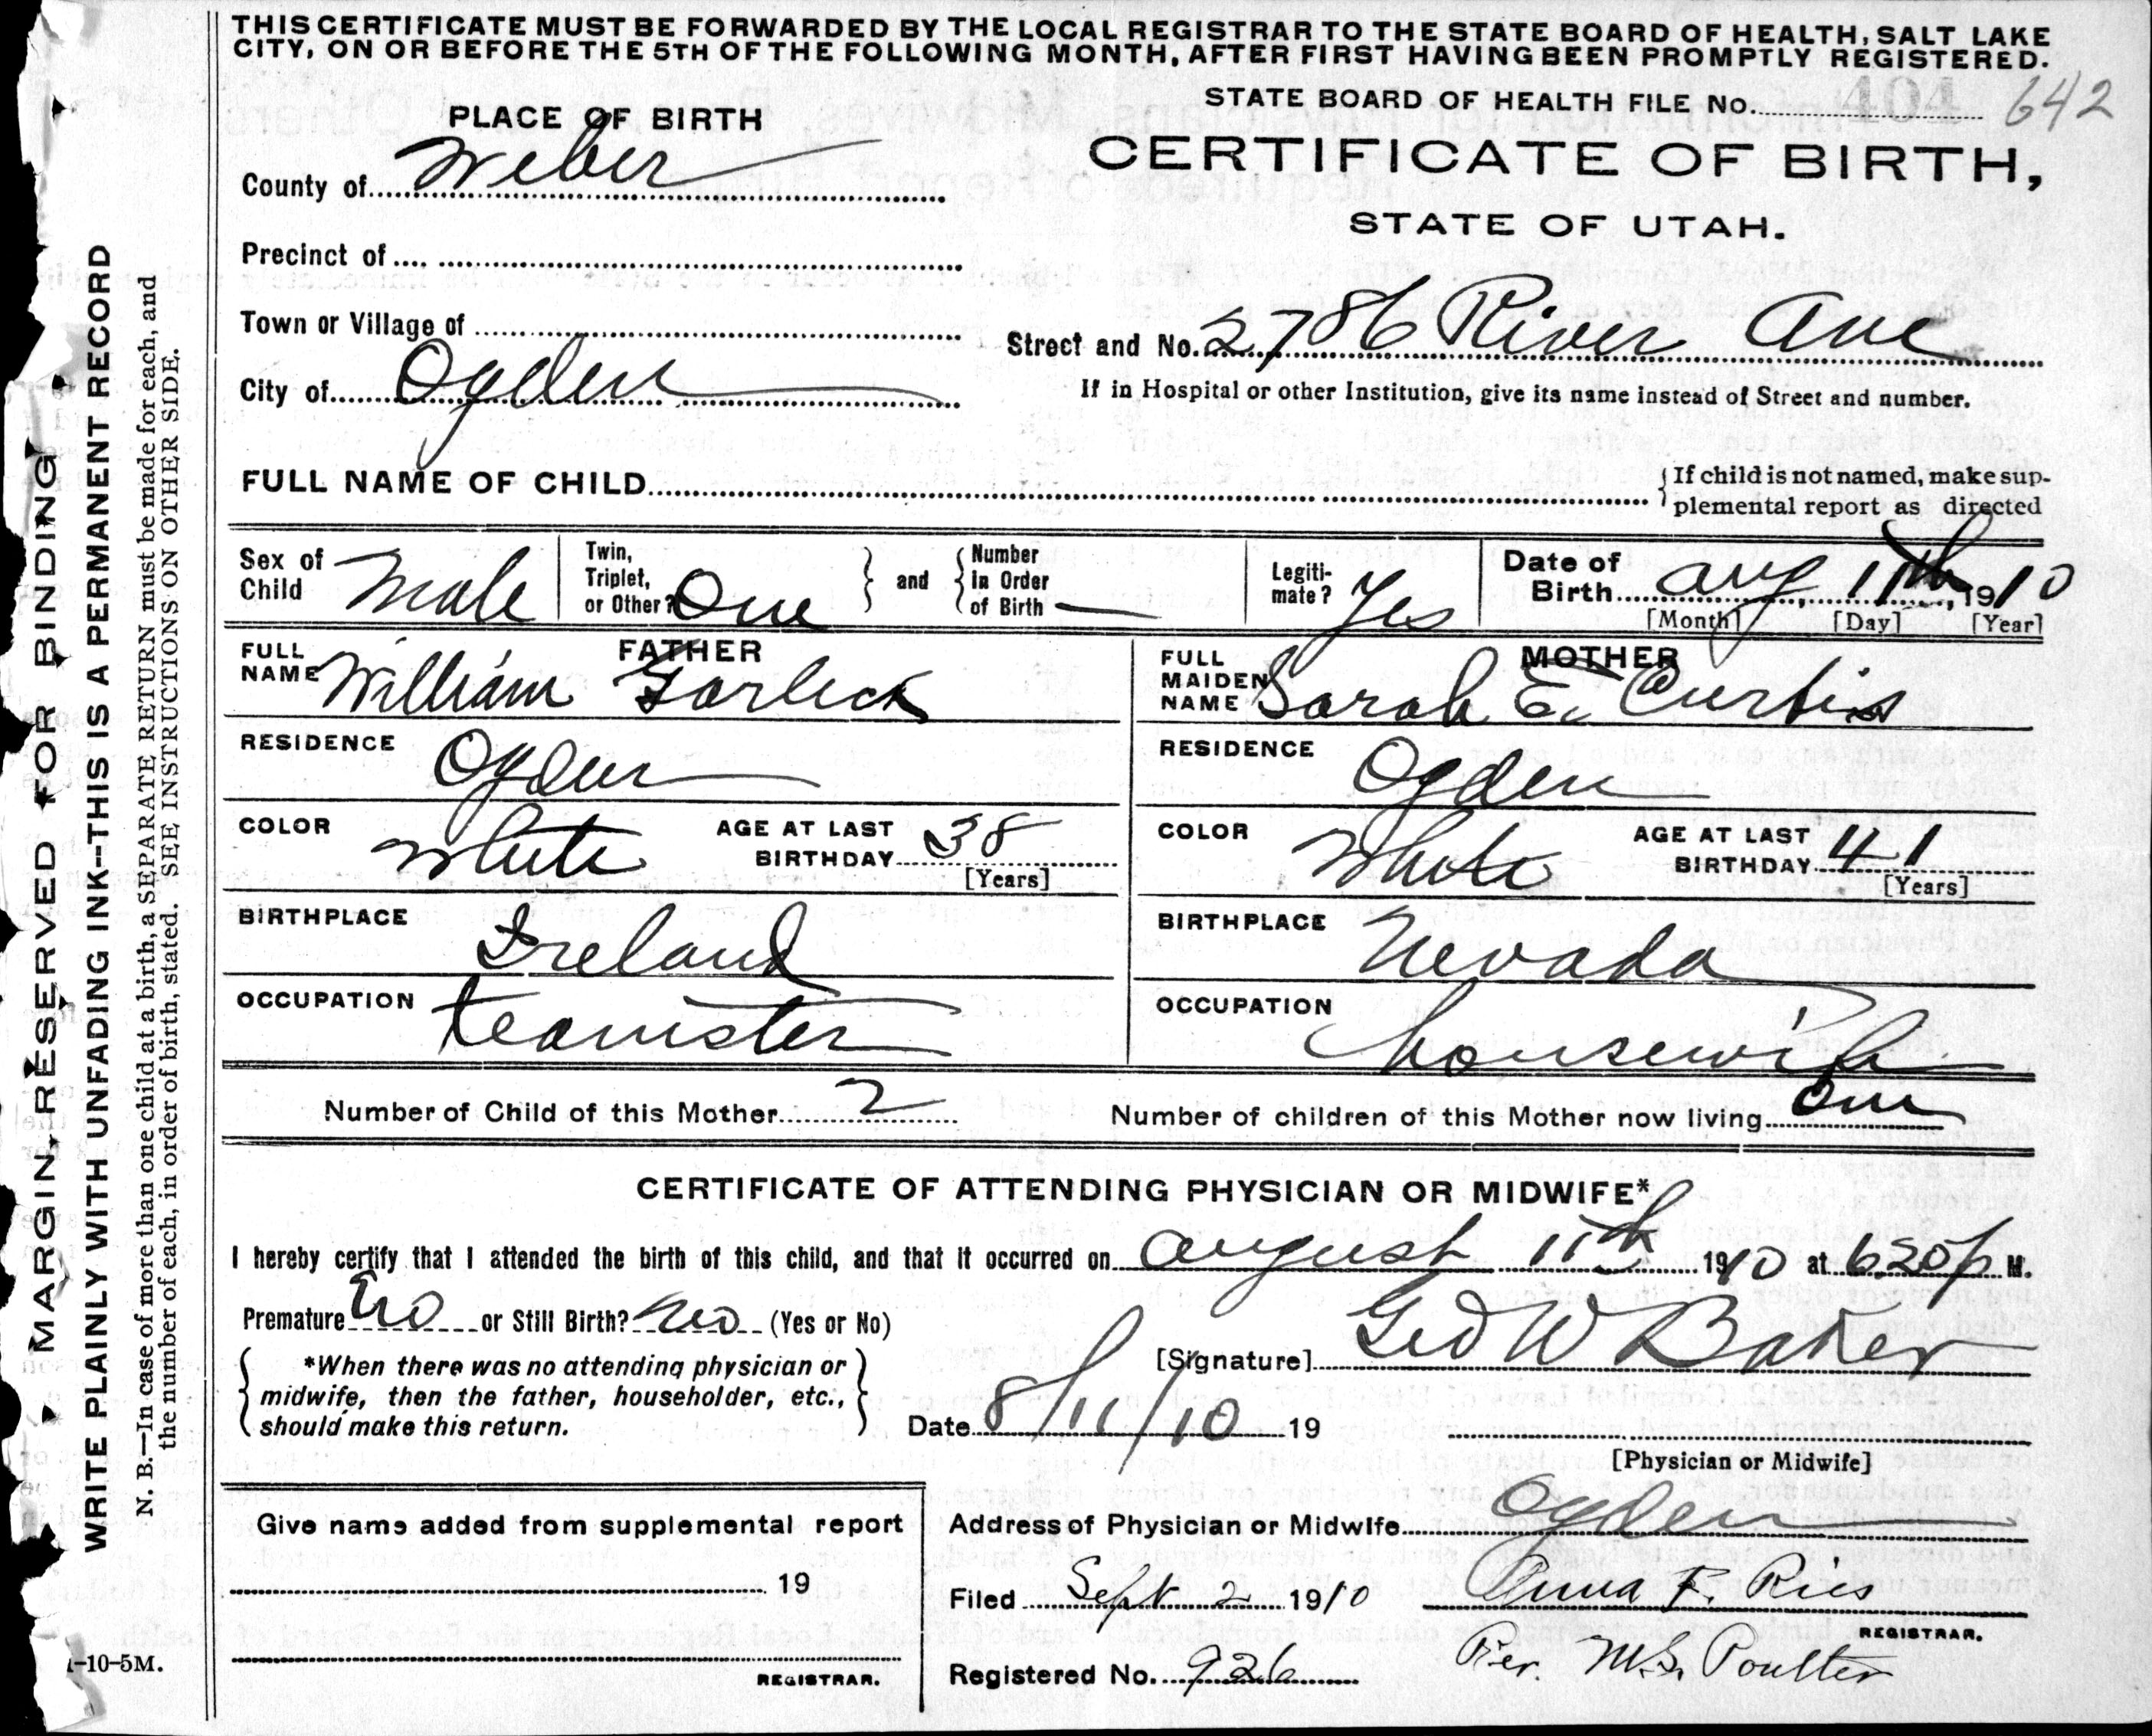 THIS CERTIFICATE MUST BE FORWARDED BY THE LOCAL REGISTRAR TO THE STATE BOARD OF HEALTH, SALT LAKE
CITY, ON OR BEFORE THE 5TH OF THE FOLLOWING MONTH, AFTER FIRST HAVING BEEN PROMPTLY REGISTERED.
STATE BOARD OF HEALTH FILE No. 404 642
PLACE OF BIRTH
CERTIFICATE OF BIRTH,
STATE OF UTAH.
County of Weber
Precinct of
Town or Village of
Street and No. 2786 River Ave
City of Ogden
If in Hospital or other Institution, give its name instead of Street and number.
FULL NAME OF CHILD
If child is not named, make sup-
plemental report as directed
Sex of Child Male
Twin, Triplet, or Other? One and Number In Order of Birth —
Legiti-mate? Yes
Date of Birth Aug 11th, 1910
[Month] [Day] [Year]
FATHER
FULL NAME William Garlick
RESIDENCE Ogden
COLOR White AGE AT LAST BIRTHDAY 38
[Years]
BIRTHPLACE Ireland
OCCUPATION teamster
MOTHER
FULL MAIDEN NAME Sarah E. Curtis
RESIDENCE Ogden
COLOR White AGE AT LAST BIRTHDAY 41
[Years]
BIRTHPLACE Nevada
OCCUPATION housewife
Number of Child of this Mother 2 Number of children of this Mother now living One
CERTIFICATE OF ATTENDING PHYSICIAN OR MIDWIFE*
I hereby certify that I attended the birth of this child, and that it occurred on August 11th 1910 at 6:20 p M.
Premature no or Still Birth? no (Yes or No)
*When there was no attending physician or
midwife, then the father, householder, etc.,
should make this return.
[Signature] Geo W Baker
Date 8/11/10 19
[Physician or Midwife]
Give name added from supplemental report
19
REGISTRAR.
Address of Physician or Midwife Ogden
Filed Sept 2 1910 Anna F. Ries
REGISTRAR.
Registered No. 926 Per. M.S. Poulter
MARGIN RESERVED FOR BINDING
WRITE PLAINLY WITH UNFADING INK--THIS IS A PERMANENT RECORD
N. B.—In case of more than one child at a birth, a SEPARATE RETURN must be made for each, and
the number of each, in order of birth, stated. SEE INSTRUCTIONS ON OTHER SIDE.
-10-5M.